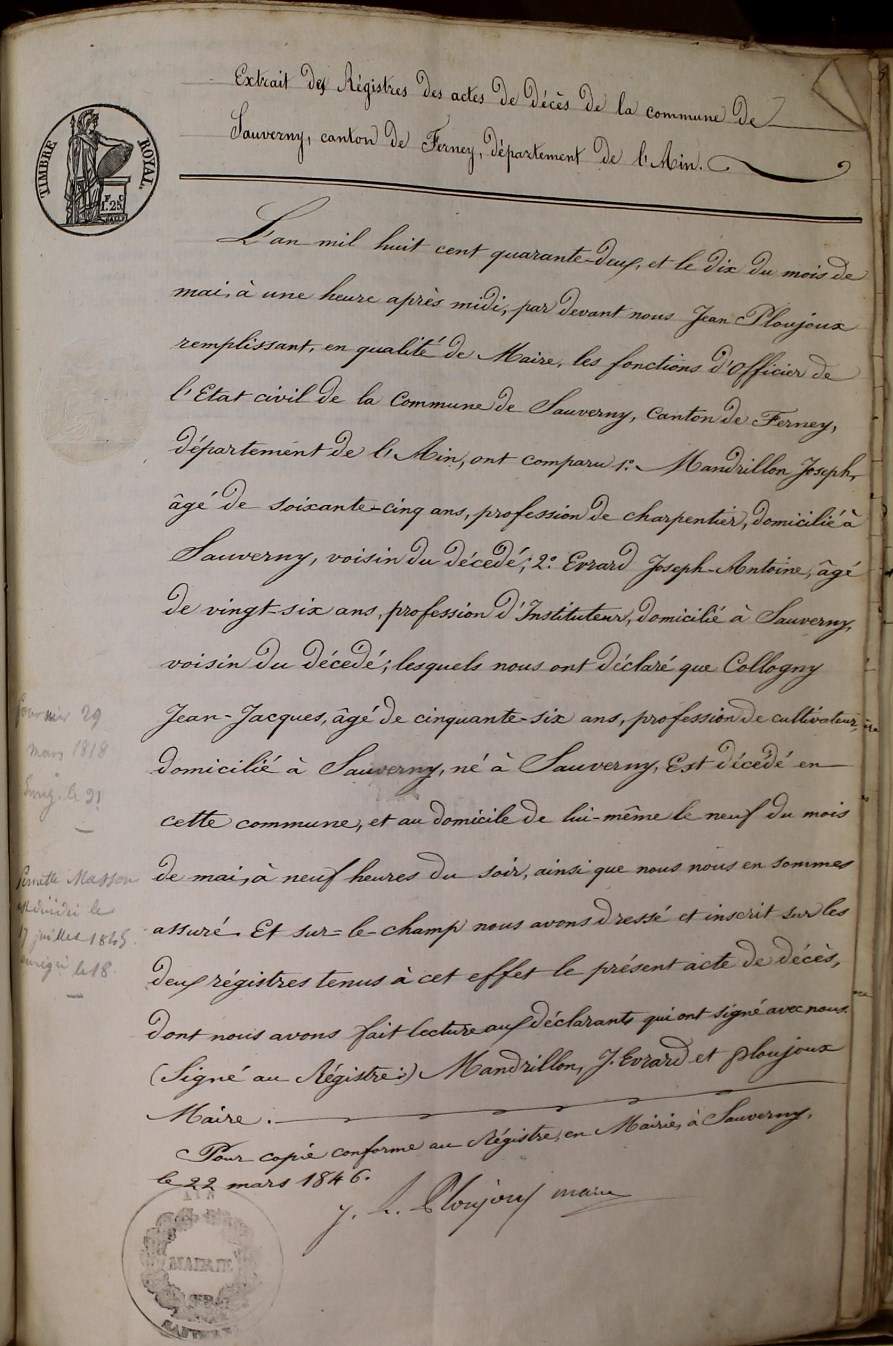 Extrait des Régistres des actes de décès de la commune de
Sauverny, canton de Ferney, département de l'Ain.
TIMBRE ROYAL.
1.25
L'an mil huit cent quarante-deux, et le dix du mois de
mai, à une heure après midi, par devant nous Jean Ploujoux
remplissant, en qualité de Maire, les fonctions d'Officier de
l'Etat civil de la Commune de Sauverny, Canton de Ferney,
département de l'Ain, ont comparu 1º. Mandrillon Joseph,
âgé de soixante-cinq ans, profession de charpentier, domicilié à
Sauverny, voisin du décedé; 2º. Evrard Joseph-Antoine, âgé
de vingt-six ans, profession d'Instituteur, domicilié à Sauverny,
voisin du décedé; lesquels nous ont déclaré que Collogny
Jean-Jacques, âgé de cinquante-six ans, profession de cultivateur,
domicilié à Sauverny, né à Sauverny, Est décédé en
cette commune, et au domicile de lui-même le neuf du mois
de mai, à neuf heures du soir, ainsi que nous nous en sommes
assuré. Et sur=le-champ nous avons dressé et inscrit sur les
deux régistres tenus à cet effet le présent acte de décès,
dont nous avons fait lecture aux déclarants qui ont signé avec nous.
(Signé au Régistre:) Mandrillon, J. Evrard et Ploujoux
Maire.
Pour copie conforme au Régistre, en Mairie, à Sauverny,
le 22 mars 1846.
J. L. Ploujoux maire
29
mars 1818
le 21
Pernette Masson
est décédée le
17 juillet 1845.
le 18.
AIN
MAIRIE